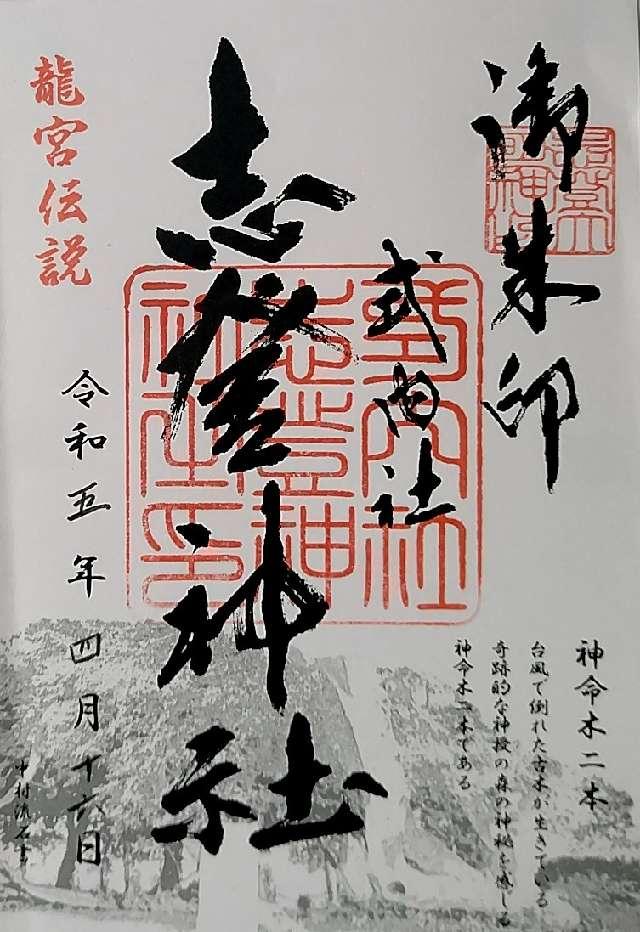 御朱印
式内社
志登神社
龍宮伝説
令和五年四月十六日
神命木二本
台風で倒れた古木が生きている
奇跡的な神授の森の神秘を感じる
神命木二本である
式内社
志登神
社之印